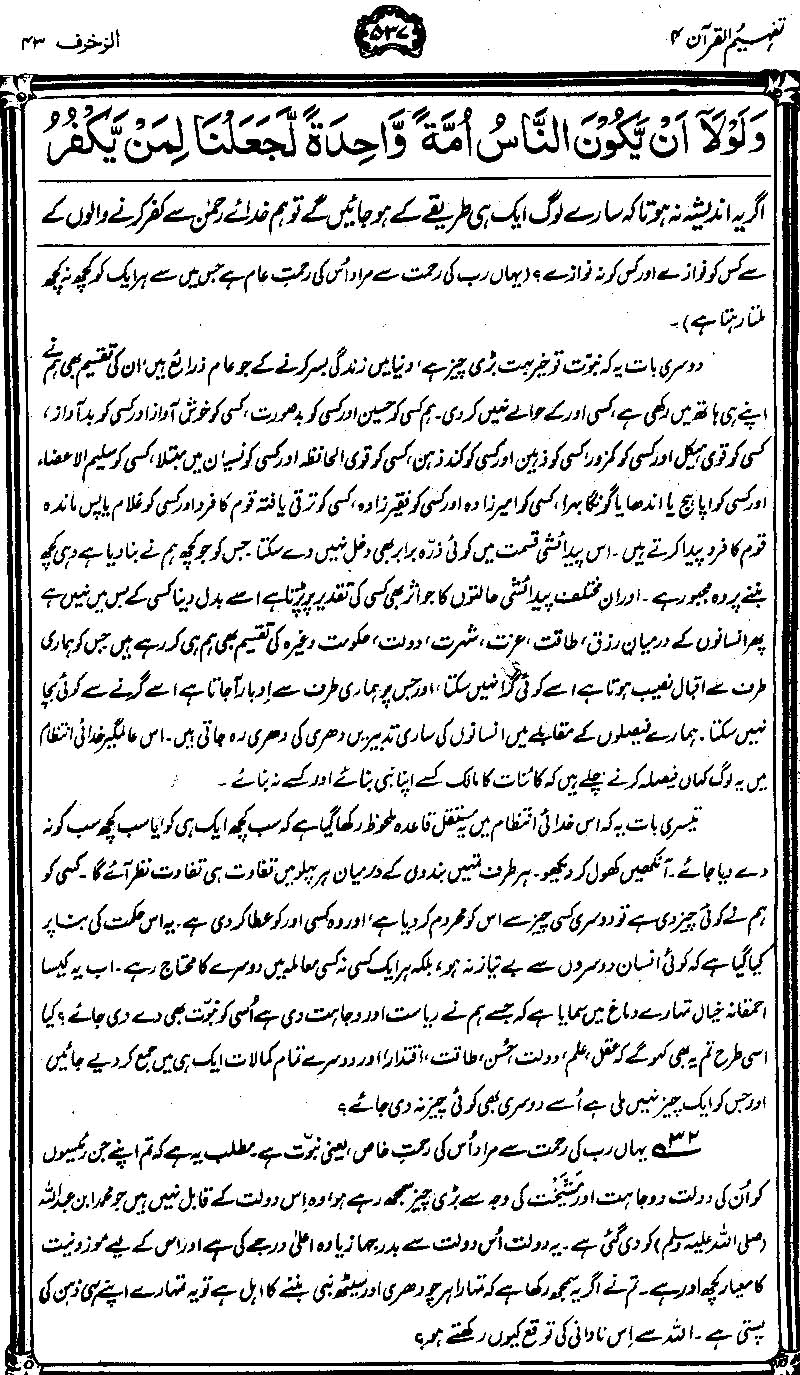 تفہیم القرآن ۴
۵۳۷
الزخرف ۴۳
وَلَوْلَآ اَنْ يَّكُوْنَ النَّاسُ اُمَّةً وَّاحِدَةً لَّجَعَلْنَا لِمَنْ يَّكْفُرُ
اگر یہ اندیشہ نہ ہوتا کہ سارے لوگ ایک ہی طریقے کے ہو جائیں گے تو ہم خدائے رحمٰن سے کفر کرنے والوں کے
سے کس کو نوازے اور کس کو نہ نوازے؟ (یہاں رب کی رحمت سے مراد اُس کی رحمتِ عام ہے جس میں سے ہر ایک کو کچھ نہ کچھ
ملتا رہتا ہے)۔
دوسری بات یہ کہ نبوّت تو خیر بہت بڑی چیز ہے، دنیا میں زندگی بسر کرنے کے جو عام ذرائع ہیں، ان کی تقسیم بھی ہم نے
اپنے ہی ہاتھ میں رکھی ہے، کسی اور کے حوالے نہیں کر دی۔ ہم کسی کو حسین اور کسی کو بدصورت، کسی کو خوش آواز اور کسی کو بدآواز،
کسی کو قوی ہیکل اور کسی کو کمزور، کسی کو ذہین اور کسی کو کند ذہن، کسی کو قوی الحافظہ اور کسی کو نسیان میں مبتلا، کسی کو سلیم الاعضاء
اور کسی کو اپاہج یا اندھا یا گونگا بہرا، کسی کو امیر زادہ اور کسی کو فقیر زادہ، کسی کو ترقی یافتہ قوم کا فرد اور کسی کو غلام یا پس ماندہ
قوم کا فرد پیدا کرتے ہیں۔ اس پیدائشی قسمت میں کوئی ذرّہ برابر بھی دخل نہیں دے سکتا۔ جس کو جو کچھ ہم نے بنا دیا ہے وہی کچھ
بننے پر وہ مجبور ہے۔ اور ان مختلف پیدائشی حالتوں کا جو اثر بھی کسی کی تقدیر پر پڑتا ہے اسے بدل دینا کسی کے بس میں نہیں ہے
پھر انسانوں کے درمیان رزق، طاقت، عزت، شہرت، دولت، حکومت وغیرہ کی تقسیم بھی ہم ہی کر رہے ہیں جس کو ہماری
طرف سے اقبال نصیب ہوتا ہے اسے کوئی گرا نہیں سکتا، اور جس پر ہماری طرف سے اِدبار آجاتا ہے اسے گرنے سے کوئی بچا
نہیں سکتا۔ ہمارے فیصلوں کے مقابلے میں انسانوں کی ساری تدبیریں دھری کی دھری رہ جاتی ہیں۔ اس عالمگیر خدائی انتظام
میں یہ لوگ کہاں فیصلہ کرنے چلے ہیں کہ کائنات کا مالک کسے اپنا نبی بنائے اور کسے نہ بنائے۔
تیسری بات یہ کہ اس خدائی انتظام میں یہ مستقل قاعدہ ملحوظ رکھا گیا ہے کہ سب کچھ ایک ہی کو یا سب کچھ سب کو نہ
دے دیا جائے۔ آنکھیں کھول کر دیکھو۔ ہر طرف تمہیں بندوں کے درمیان ہر پہلو میں تفاوت ہی تفاوت نظر آئے گا۔ کسی کو
ہم نے کوئی چیز دی ہے تو دوسری کسی چیز سے اس کو محروم کر دیا ہے، اور وہ کسی اور کو عطا کر دی ہے۔ یہ اس حکمت کی بنا پر
کیا گیا ہے کہ کوئی انسان دوسروں سے بے نیاز نہ ہو، بلکہ ہر ایک کسی نہ کسی معاملہ میں دوسرے کا محتاج رہے۔ اب یہ کیسا
احمقانہ خیال تمہارے دماغ میں سمایا ہے کہ جسے ہم نے ریاست اور وجاہت دی ہے اُسی کو نبوّت بھی دے دی جائے؟ کیا
اسی طرح تم یہ بھی کہو گے کہ عقل، علم، دولت، حُسن، طاقت، اقتدار، اور دوسرے تمام کمالات ایک ہی میں جمع کر دیے جائیں
اور جس کو ایک چیز نہیں ملی ہے اُسے دوسری بھی کوئی چیز نہ دی جائے؟
۳۲ یہاں رب کی رحمت سے مراد اُس کی رحمتِ خاص، یعنی نبوّت ہے۔ مطلب یہ ہے کہ تم اپنے جن رئیسوں
کو اُن کی دولت و وجاہت اور مشیخت کی وجہ سے بڑی چیز سمجھ رہے ہو، وہ اِس دولت کے قابل نہیں ہیں جو محمد ابن عبداللہ
(صلی اللہ علیہ وسلم) کو دی گئی ہے۔ یہ دولت اُس دولت سے بدرجہا زیادہ اعلیٰ درجے کی ہے اور اس کے لیے موزونیت
کا معیار کچھ اور ہے۔ تم نے اگر یہ سمجھ رکھا ہے کہ تمہارا ہر چودھری اور سیٹھ نبی بننے کا اہل ہے تو یہ تمہارے اپنے ہی ذہن کی
پستی ہے۔ اللہ سے اِس نادانی کی توقع کیوں رکھتے ہو؟